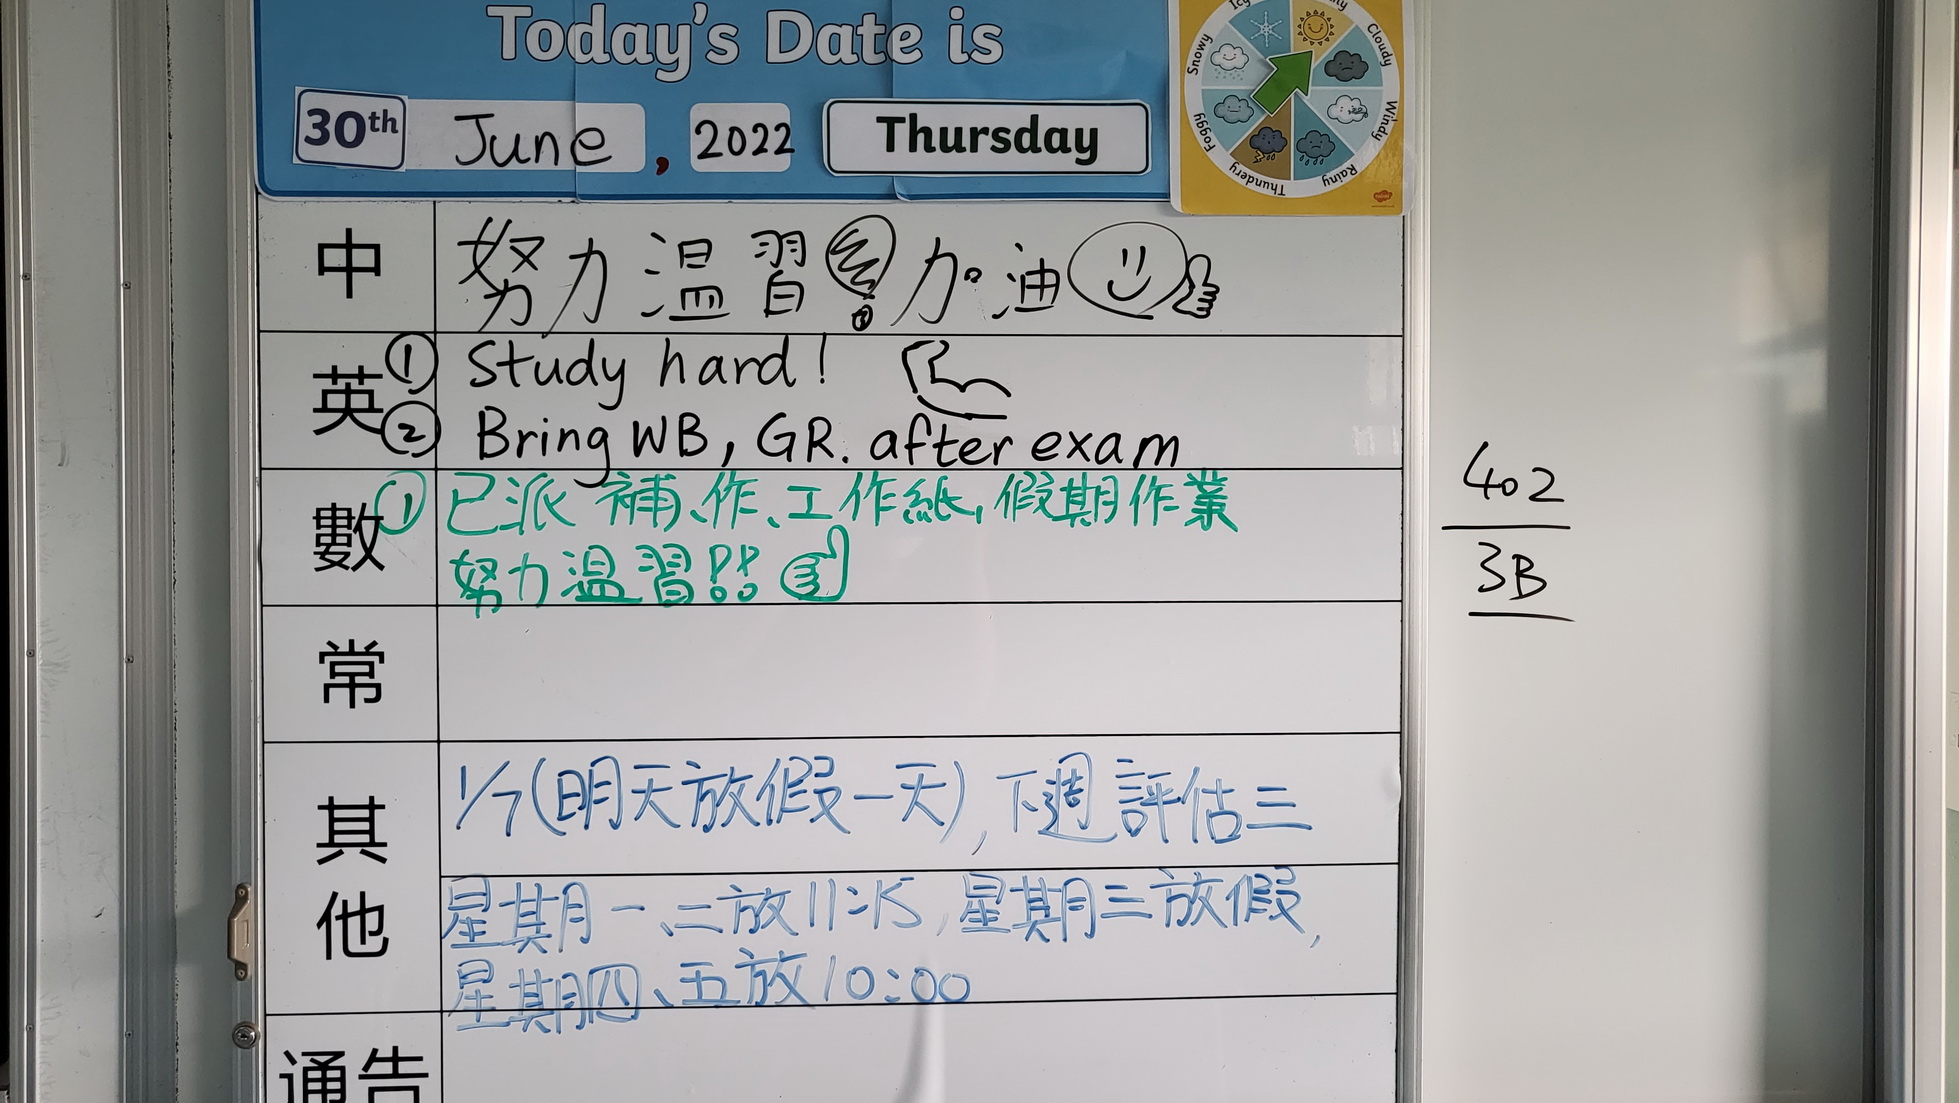 Today's Date is
30th June, 2022 Thursday
Icy
Cloudy
Windy
Rainy
Thundery
Foggy
Snowy
中 努力温習！加油
英 ① Study hard!
② Bring WB, GR. after exam
數 ① 已派補、作、工作紙,假期作業
努力温習!!
常
其他 1/7(明天放假一天),下週評估三
星期一、二放11:15,星期三放假,
星期四、五放10:00
通告
402
3B